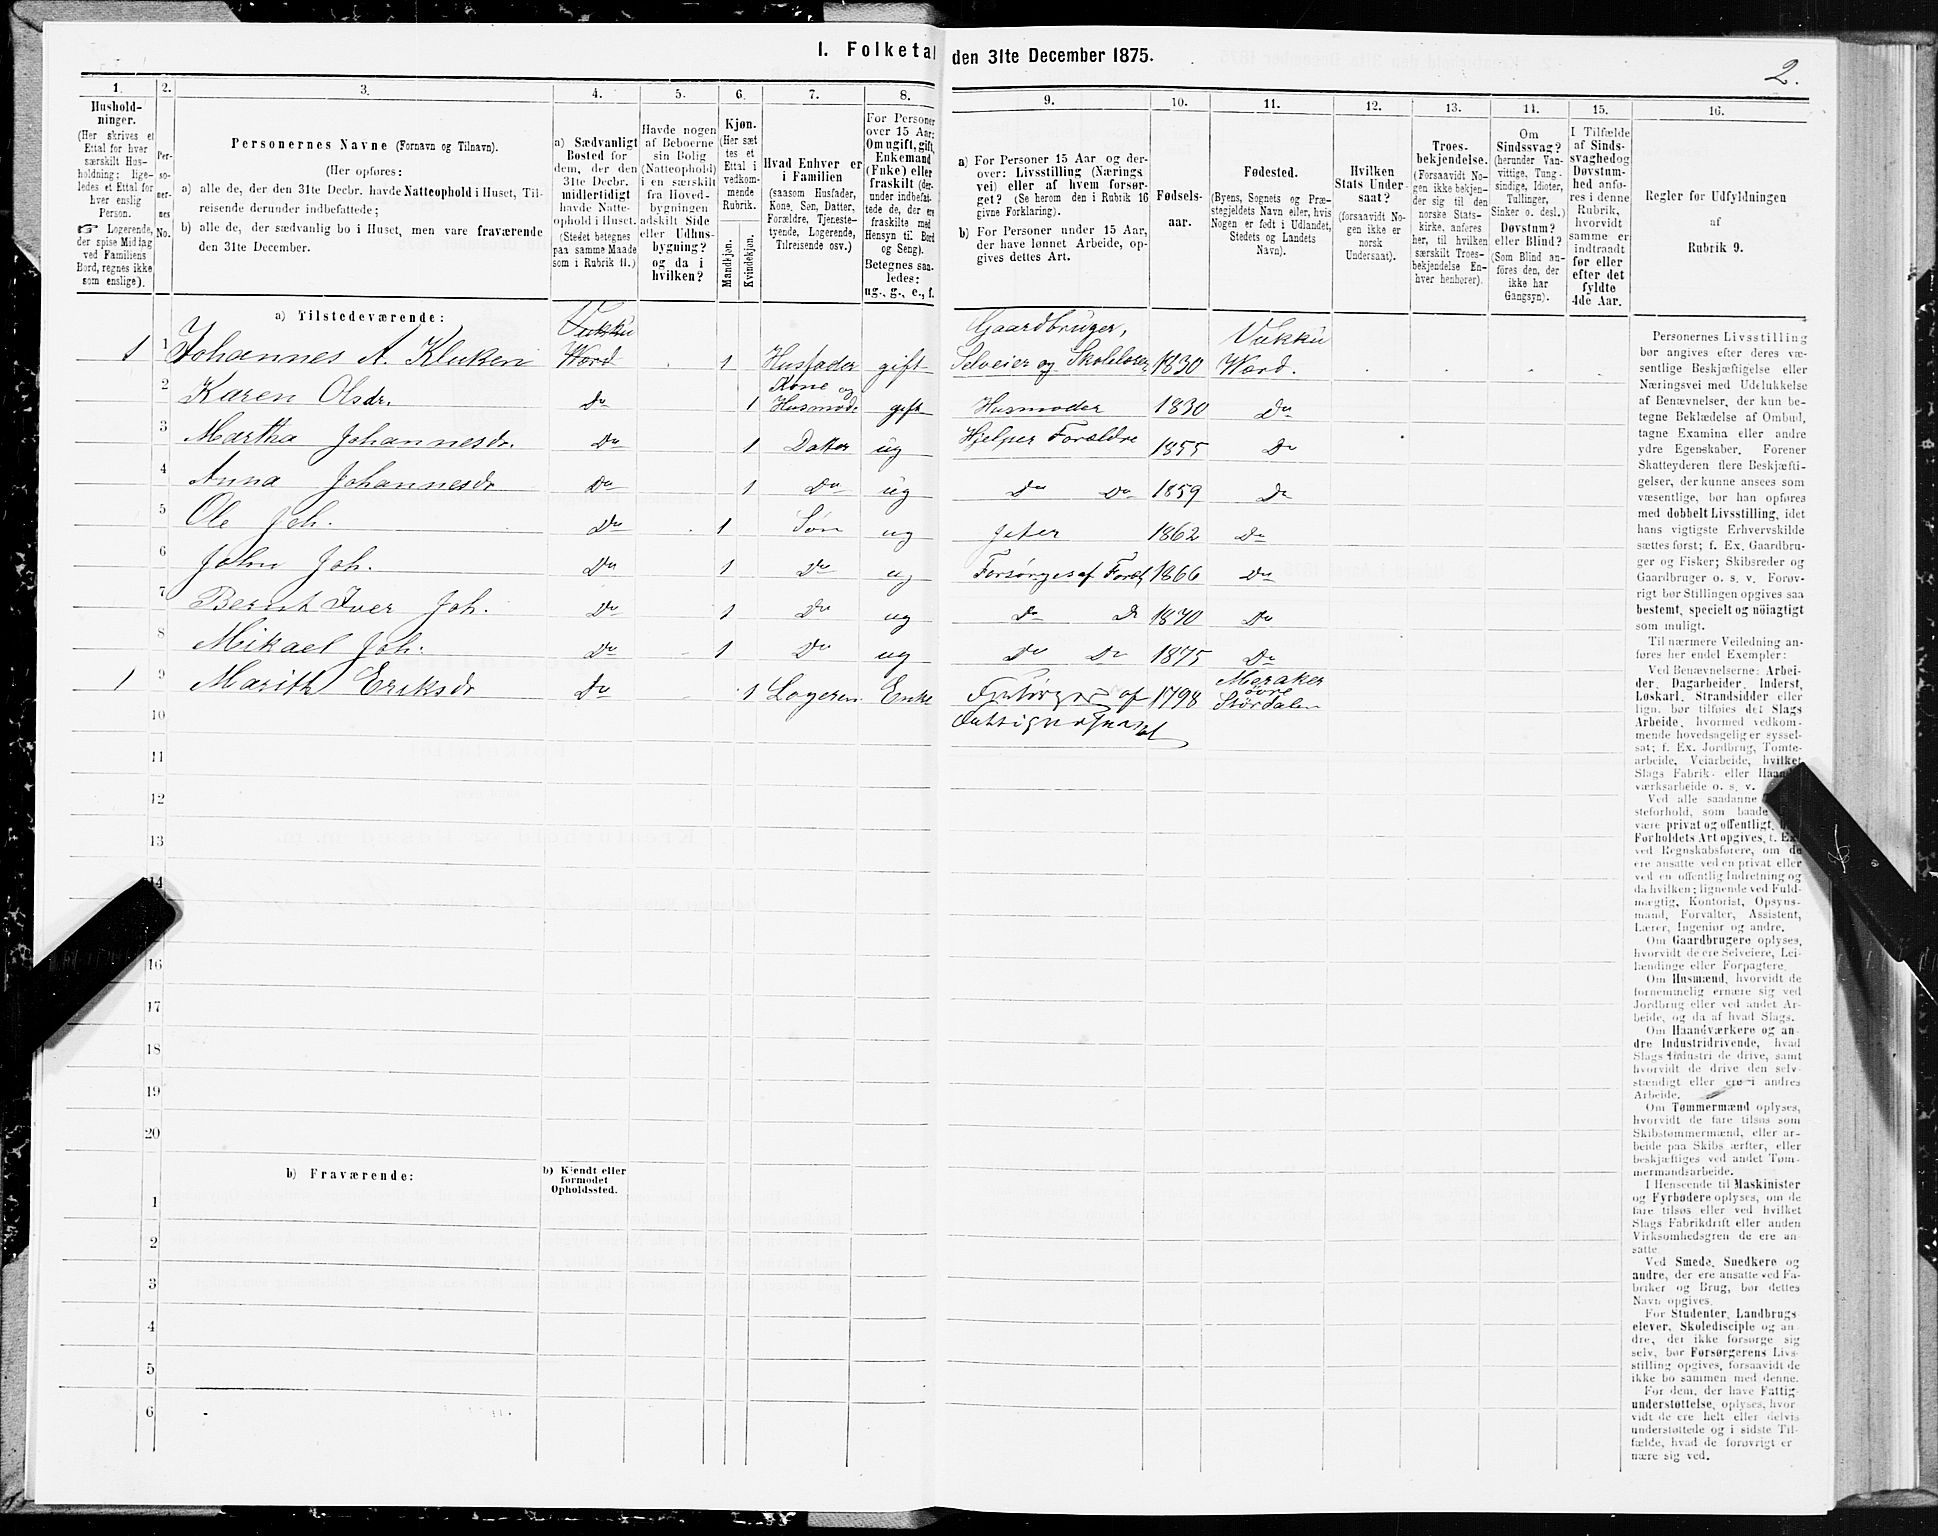 I. Folketal den 31te December 1875.
2.
1. 2. 3. 4. 5. 6. 7. 8. 9. 10. 11. 12. 13. 14. 15. 16.
Hushold-
ninger.
(Her skrives et
Ettal for hver
særskilt Hus-
holdning; lige-
ledes et Ettal for
hver enslig
Person.
☞ Logerende,
der spise Middag
ved Familiens
Bord, regnes ikke
som enslige).
Per-
so-
ner-
nes
No.
Personernes Navne (Fornavn og Tilnavn).
(Her opføres:
a) alle de, der den 31te Decbr. havde Natteophold i Huset, Til-
reisende derunder indbefattede;
b) alle de, der sædvanlig bo i Huset, men vare fraværende
den 31te December.
a) Sædvanligt
Bosted for
dem, der den
31te Decbr.
midlertidigt
havde Natte-
ophold i Huset.
(Stedet betegnes
paa samme Maade
som i Rubrik 11.)
Havde nogen
af Beboerne
sin Bolig
(Natteophold)
i en særskilt
fra Hoved-
bygningen
adskilt Side
eller Udhus-
bygning?
og da i
hvilken?
Kjøn.
(Her sæt
tes et
Ettal i
vedkom-
mende
Rubrik.
Mandkjøn.
Kvindekjøn.
Hvad Enhver er
i Familien
(saasom Husfader,
Kone, Søn, Datter,
Forældre, Tjeneste-
tyende, Logerende,
Tilreisende osv.)
For Personer
over 15 Aar:
Om ugift, gift,
Enkemand
(Enke) eller
fraskilt (der-
under indbefat-
tede de, der ere
fraskilte med
Hensyn til Bord
og Seng).
Betegnes saa-
ledes:
ug., g., e., f.
a) For Personer 15 Aar og der-
over: Livsstilling (Nærings
vei) eller af hvem forsør-
get? (Se herom den i Rubrik 16
givne Forklaring).
b) For Personer under 15 Aar,
der have lønnet Arbeide, op-
gives dettes Art.
Fødsels-
aar.
Fødested.
(Byens, Sognets og Præ-
stegjeldets Navn eller, hvis
Nogen er født i Udlandet,
Stedets og Landets
Navn).
Hvilken
Stats Under-
saat?
(forsaavidt No-
gen ikke er
norsk
Undersaat).
Troes-
bekjendelse.
(Forsaavidt No-
gen ikke bekjen-
der sig til den
norske Stats-
kirke, anføres
her, til hvilken
særskilt Troes-
bekjendelse En-
hver henhører).
Om
Sindssvag?
(herunder Van-
vittige, Tung-
sindige, Idioter,
Tullinger,
Sinker o. desl.)
Døvstum?
eller Blind?
(Som Blind an-
føres den, der
ikke har
Gangsyn).
I Tilfælde
af Sinds-
svaghed og
Døvstum-
hed anfø-
res i denne
Rubrik,
hvorvidt
samme er
indtraadt
før eller
efter det
fyldte
4de Aar.
Regler for Udfyldningen
af
Rubrik 9.
a) Tilstedeværende:
1 1 Johannes A. Kluken Vukku Værd 1 Husfader gift Gaardbruger, Selveier og Skolelærer 1830 Vukku Værd.
2 Karen Olsdr. Do 1 Kone og Husmode gift Husmoder 1830 Do
3 Martha Johannesdr. Do 1 Datter ug Hjelper Forældre 1855 Do
4 Anna Johannesdr Do 1 Do ug Do Do 1859 Do
5 Ole Joh. Do 1 Søn ug Jeter 1862 Do
6 John Joh. Do 1 Do ug Forsørges af Foræl 1866 Do
7 Bernt Iver Joh. Do 1 Do ug Do D 1870 Do
8 Mikael Joh. Do 1 Do ug Do Do 1875 Do
1 9 Marith Eriksdr Do 1 Logeren Enke af 1798 Meraker øvre Størdalen
10
11
12
13
14
16
17
18
19
20
b) Fraværende:
b) Kjendt eller
formodet
Opholdssted.
1
2
3
4
5
6
Personernes Livsstilling
bør angives efter deres væ-
sentlige Beskjæftigelse eller
Næringsvei med Udelukkelse
af Benævnelser, der kun be-
tegne Beklædelse af Ombud,
tagne Examina eller andre
ydre Egenskaber. Forener
Skatteyderen flere Beskjæfti-
gelser, der kunne ansees som
væsentlige, bør han opføres
med dobbelt Livsstilling, idet
hans vigtigste Erhvervskilde
sættes først; f. Ex. Gaardbru-
ger og Fisker; Skibsreder og
Gaardbruger o. s. v. Forøv-
rigt bør Stillingen opgives saa
bestemt, specielt og nöiagtigt
som muligt.
Til nærmere Veiledning an-
føres her endel Exempler:
Ved Benævnelserne: Arbei-
der, Dagarbeider, Inderst,
Løskarl, Strandsidder eller
lign. bør tilføies det Slags
Arbeide, hvormed vedkom-
mende hovedsagelig er syssel-
sat; f. Ex. Jordbrug, Tomte-
arbeide, Veiarbeide, hvilket
Slags Fabrik- eller
værksarbeide o. s. v.
Ved alle saadanne
steforhold, som baade
være privat og offentligt,
Forholdets Art opgives, t. Ex.
ved Regnskabsførere, om de
ere ansatte ved en privat eller
ved en offentlig Indretning og
da hvilken; lignende ved Fuld-
mægtig, Kontorist, Opsyns-
mand, Forvalter, Assistent,
Lærer, Ingeniør og andre.
Om Gaardbrugere oplyses,
hvorvidt de ere Selveiere, Lei-
lændinge eller Forpagtere.
Om Husmænd, hvorvidt de
fornemmelig ernære sig ved
Jordbrug eller ved andet Ar-
beide, og da af hvad Slags.
Om Haandværkere og an-
dre Industridrivende, hvad
Slags Industri de drive, samt
hvorvidt de drive den selv-
stændigt eller ere i andres
Arbeide.
Om Tømmermænd oplyses,
hvorvidt de fare tilsøs som
Skibstømmermænd, eller ar-
beide paa Skibs ærfter, eller
beskjæftiges ved andet Tøm-
mermandsarbeide.
I Henseende til Maskinister
og Fyrbødere oplyses, om de
fare tilsøs eller ved hvilket
Slags Fabrikdrift eller anden
Virksomhedsgren de ere an-
satte.
Ved Smede, Snedkere og
andre, der ere ansatte ved Fa-
briker og Brug, bør dettes
Navn opgives.
For Studenter, Landbrugs
elever, Skoledisciple og an-
dre, der ikke forsørge sig
selv, bør Forsørgerens Livs-
stilling opgives, forsaavidt de
ikke bo sammen med denne.
For dem, der have Fattig-
understøttelse, oplyses, hvor
vidt de ere helt eller delvis
understøttede og i sidste Til-
fælde, hvad de forøvrigt er
nære sig ved.